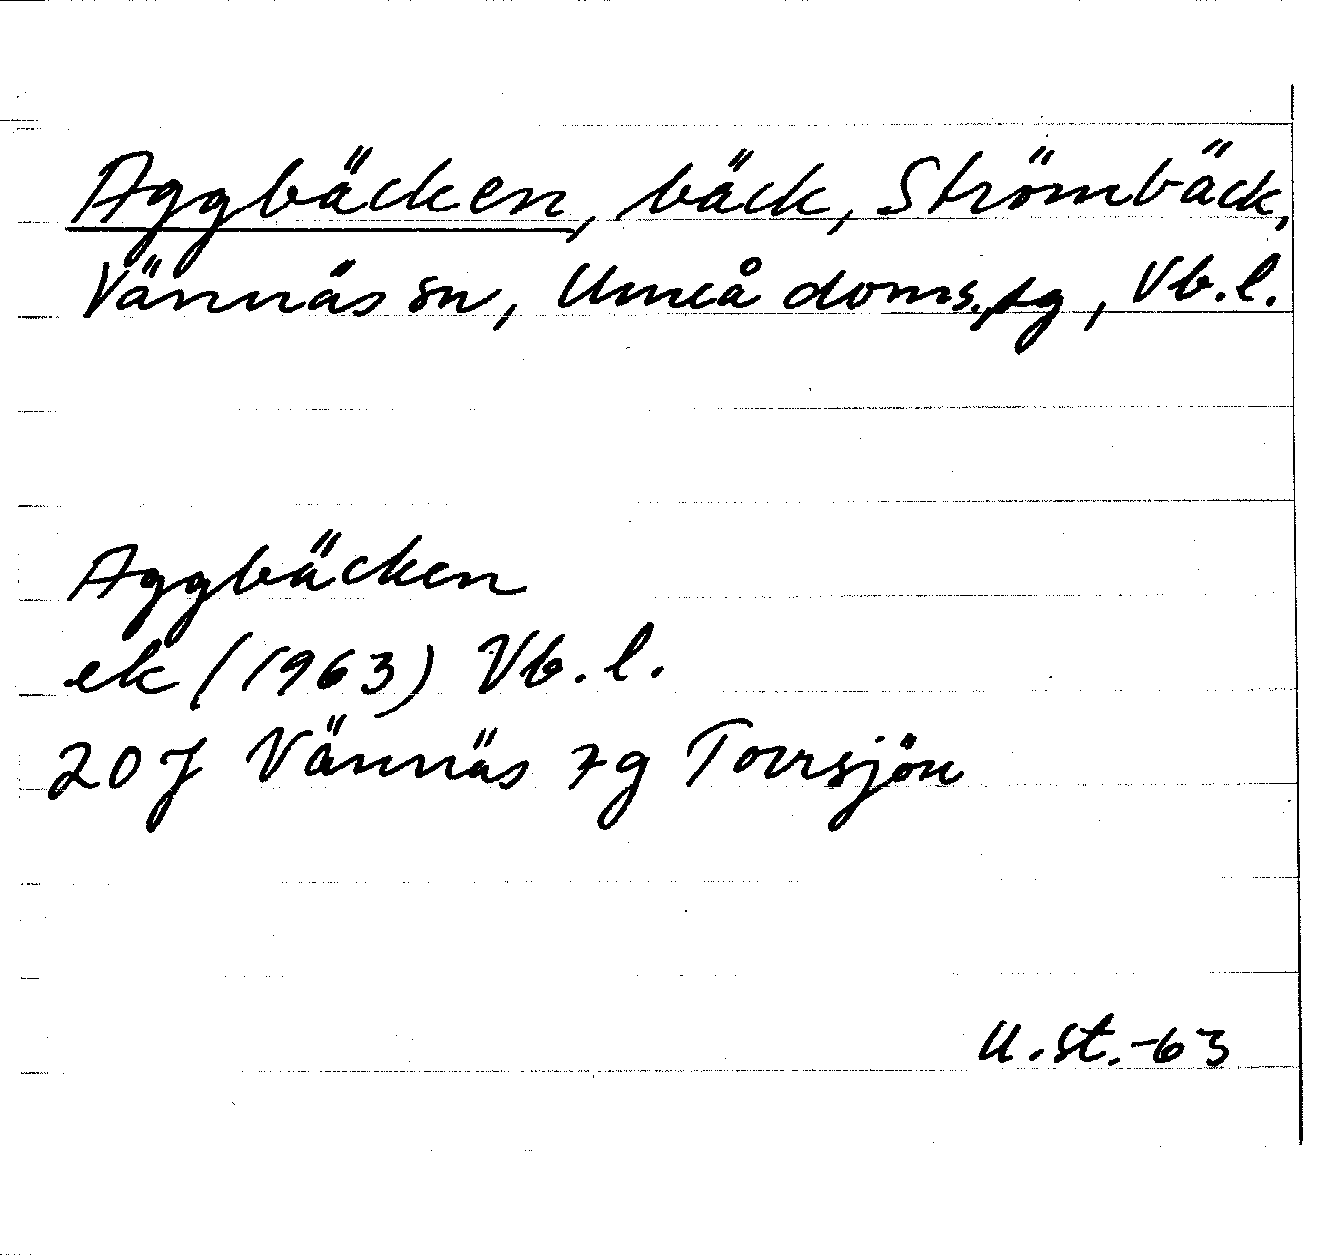 Aggbäcken, bäck, Strömbäck,
Vännäs sn, Umeå doms.tg, Vb.l.
Aggbäcken
ek (1963) Vb.l.
20 J Vännäs 7g Torrsjön
U.st.-63